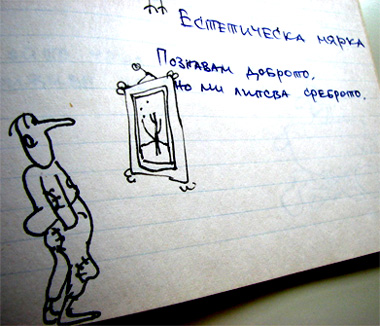 Естетическа мярка
Познавам доброто,
но ми липсва среброто.